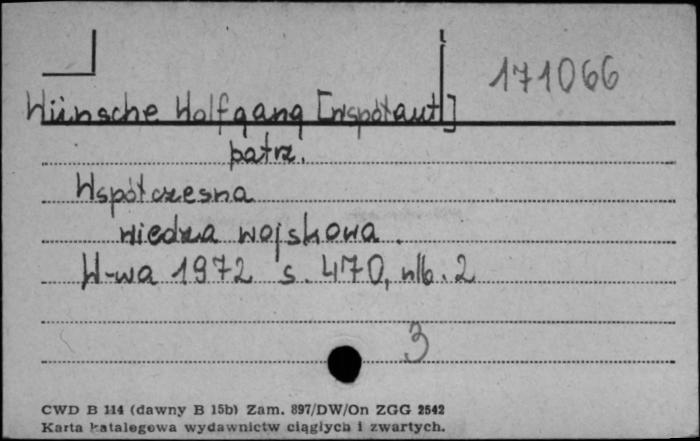 171066
Wünsche Wolfgang [współaut]
patrz.
Współczesna
wiedza wojskowa.
W-wa 1972 s. 470, nlb. 2
3
CWD B 114 (dawny B 15b) Zam. 897/DW/On ZGG 2542
Karta katalogowa wydawnictw ciągłych i zwartych.